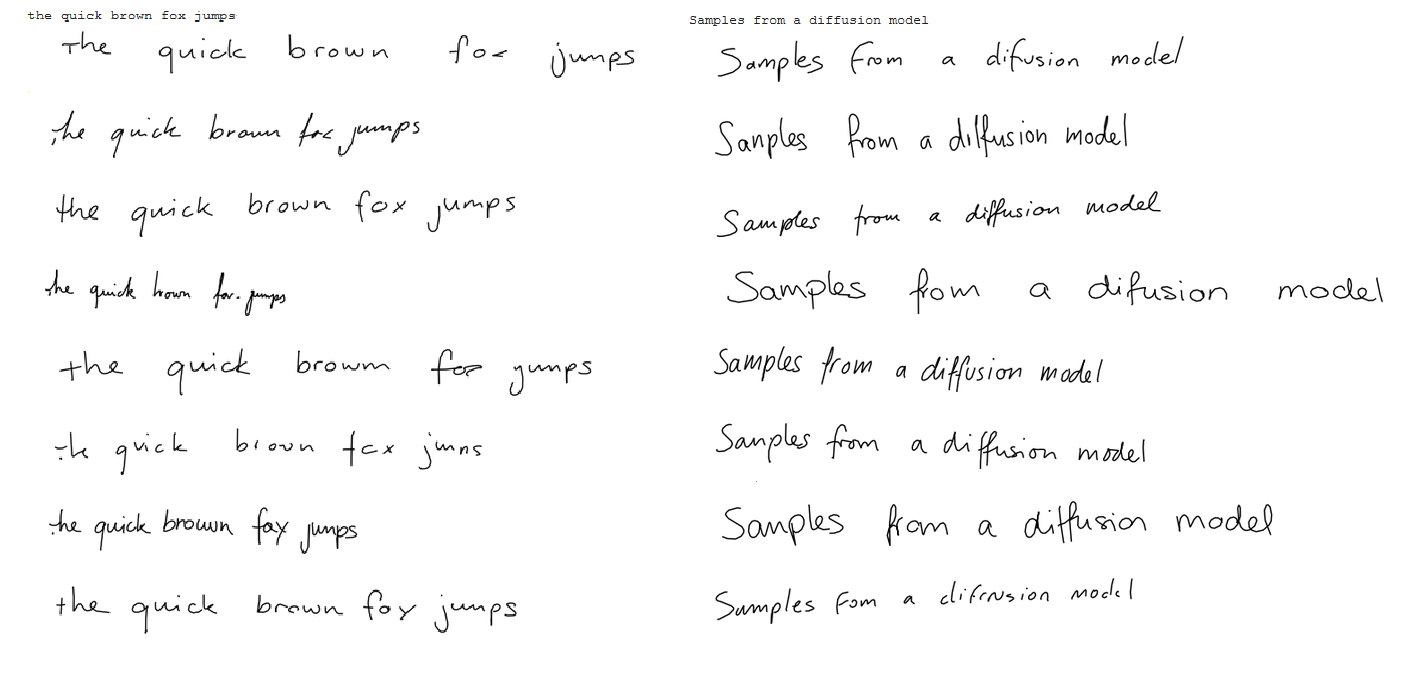 the quick brown fox jumps
The quick brown fox jumps
the quick brown fox jumps
the quick brown fox jumps
the quick brown for jumps
the quick browm for jumps
the quick brown fox jumns
the quick brouwn fax jumps
the quick brown foy jumps
Samples from a diffusion model
Samples from a difusion model
Sanples from a dilffusion model
Samples from a diffusion model
Samples from a difusion model
Samples from a diffusion model
Sanples from a diffusion model
Samples from a diffusion model
Sumples Fom a difrusion model